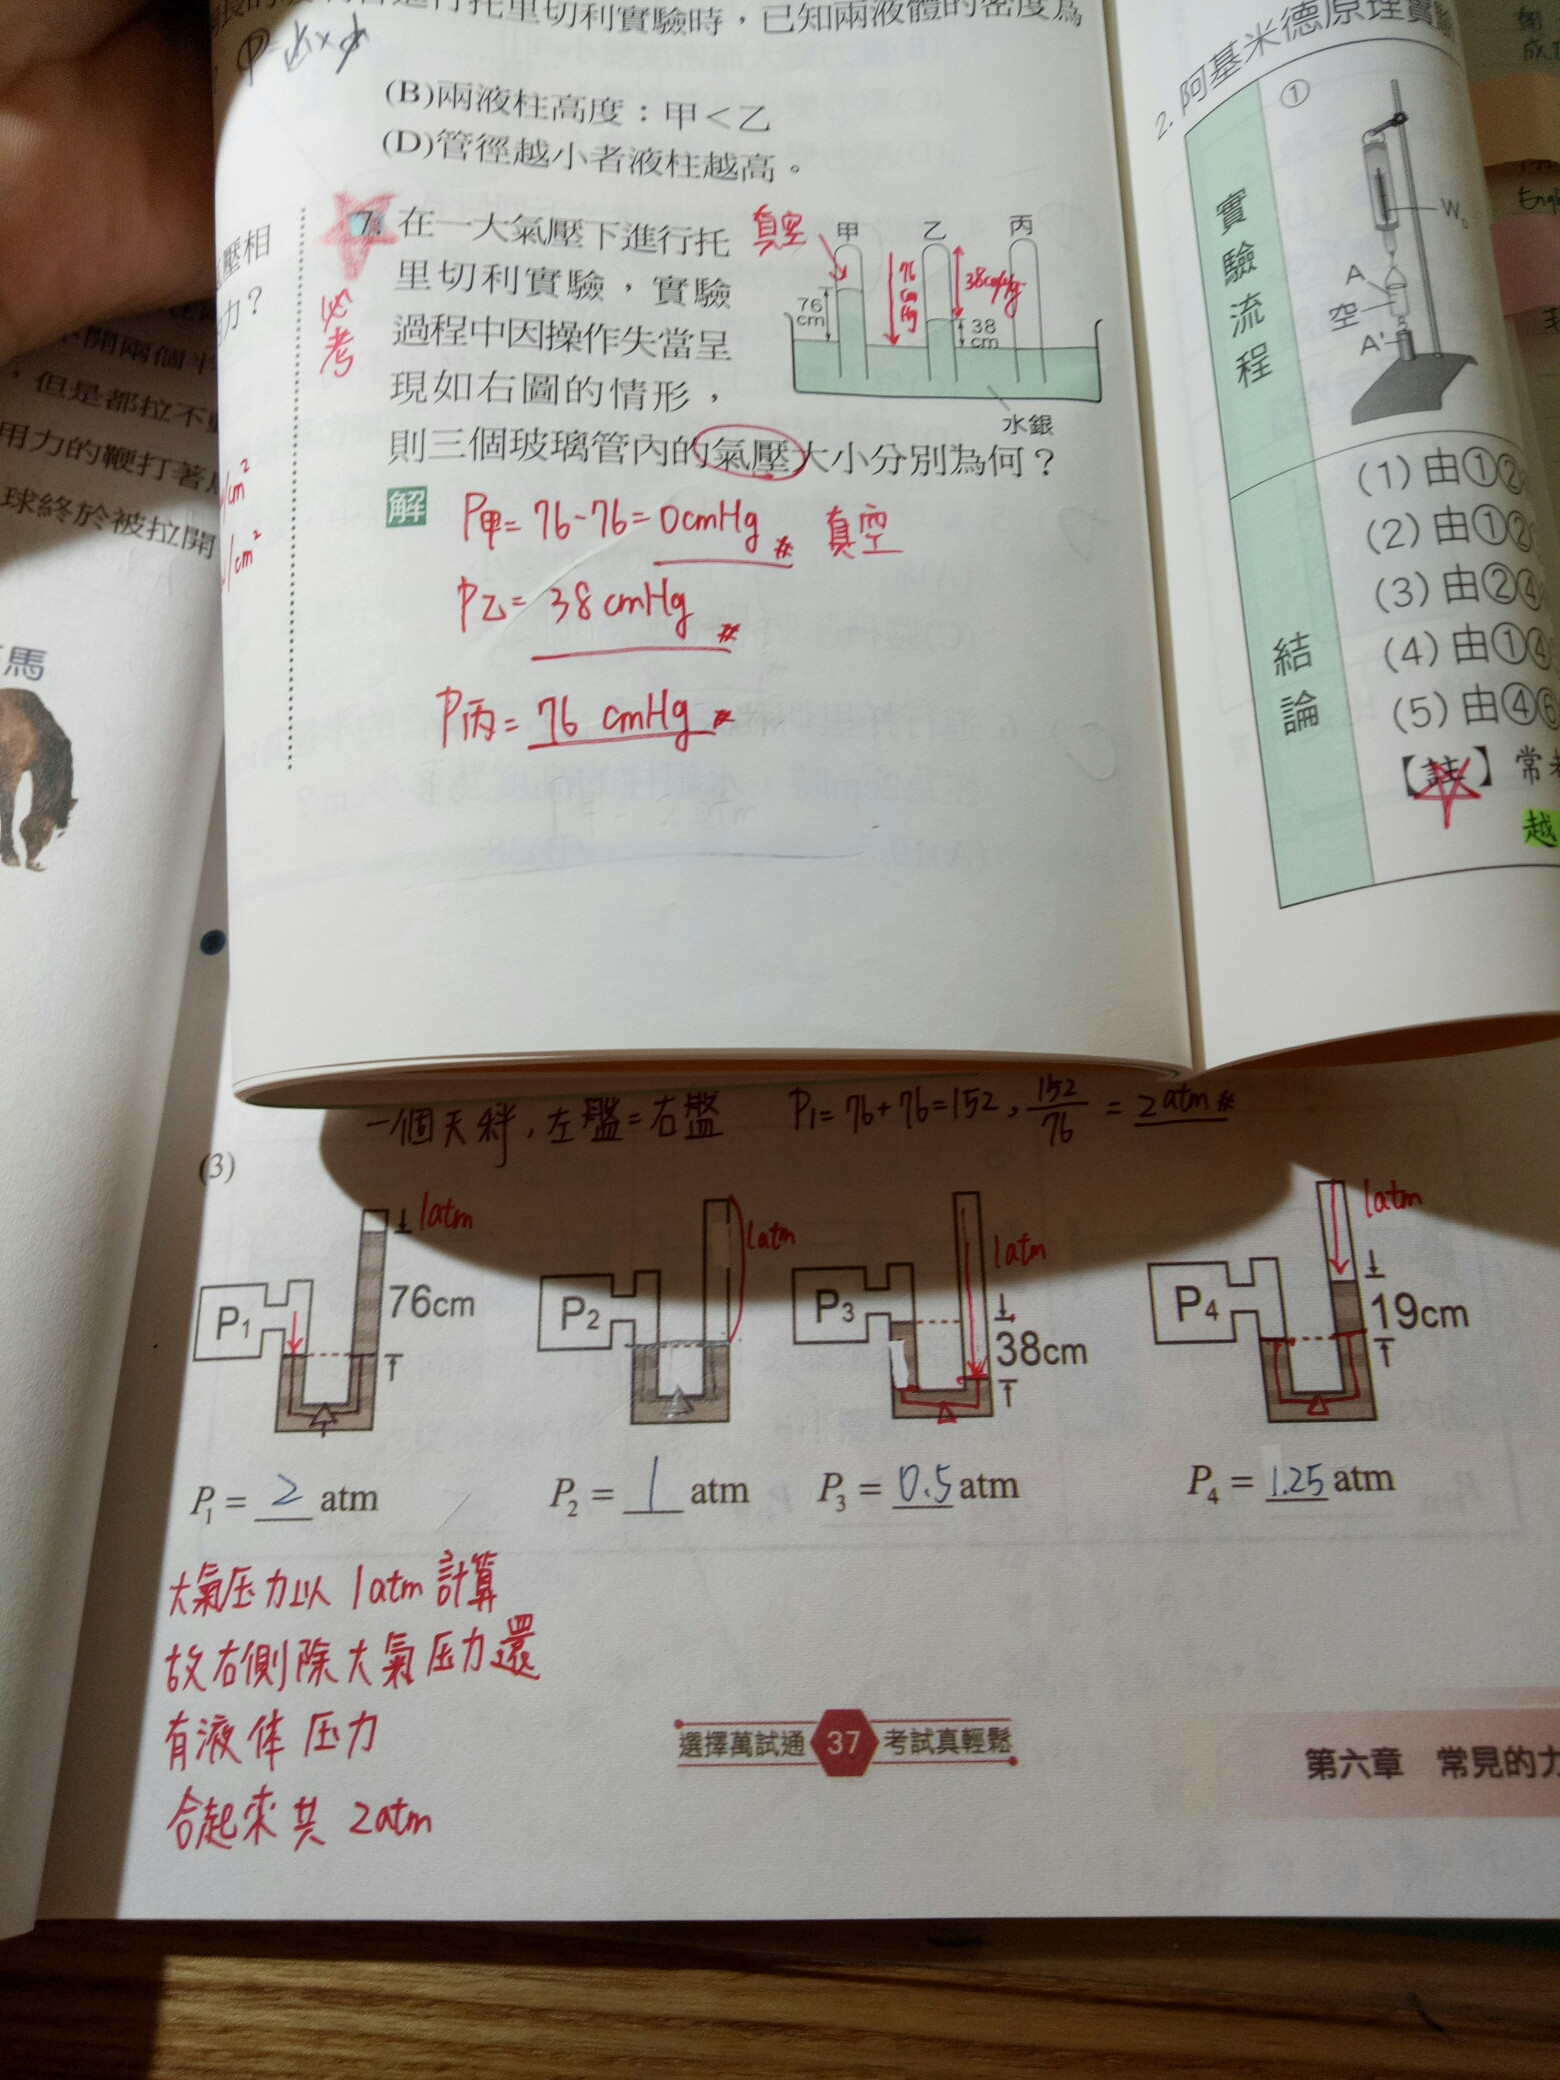 行托里切利實驗時，已知兩液體的密度為
(B)兩液柱高度：甲＜乙
(D)管徑越小者液柱越高。
7. 在一大氣壓下進行托
里切利實驗，實驗
過程中因操作失當呈
現如右圖的情形，
則三個玻璃管內的氣壓大小分別為何？
必考
真空
甲
乙
丙
76
cm
76
cmHg
38cmHg
38
cm
水銀
解
P甲= 76-76=0cmHg 真空
P乙= 38 cmHg
P丙= 76 cmHg
壓相
力？
開兩個半
，但是都拉不
用力的鞭打著
球終於被拉開
/cm²
/cm²
馬
2. 阿基米德原理實驗
①
實驗流程
A
空
A'
結論
(1) 由①②
(2) 由①②
(3) 由②④
(4) 由①④
(5) 由④⑥
【註】常
越
一個天秤，左盤=右盤 P₁=76+76=152，152/76 = 2atm
(3)
1atm
1atm
1atm
1atm
P₁
76cm
P₂
P₃
38cm
P₄
19cm
P₁ = 2 atm
P₂ = 1 atm
P₃ = 0.5 atm
P₄ = 1.25 atm
大氣压力以 1atm 計算
故右側除大氣压力還
有液体压力
合起來共 2atm
選擇萬試通 37 考試真輕鬆
第六章 常見的力